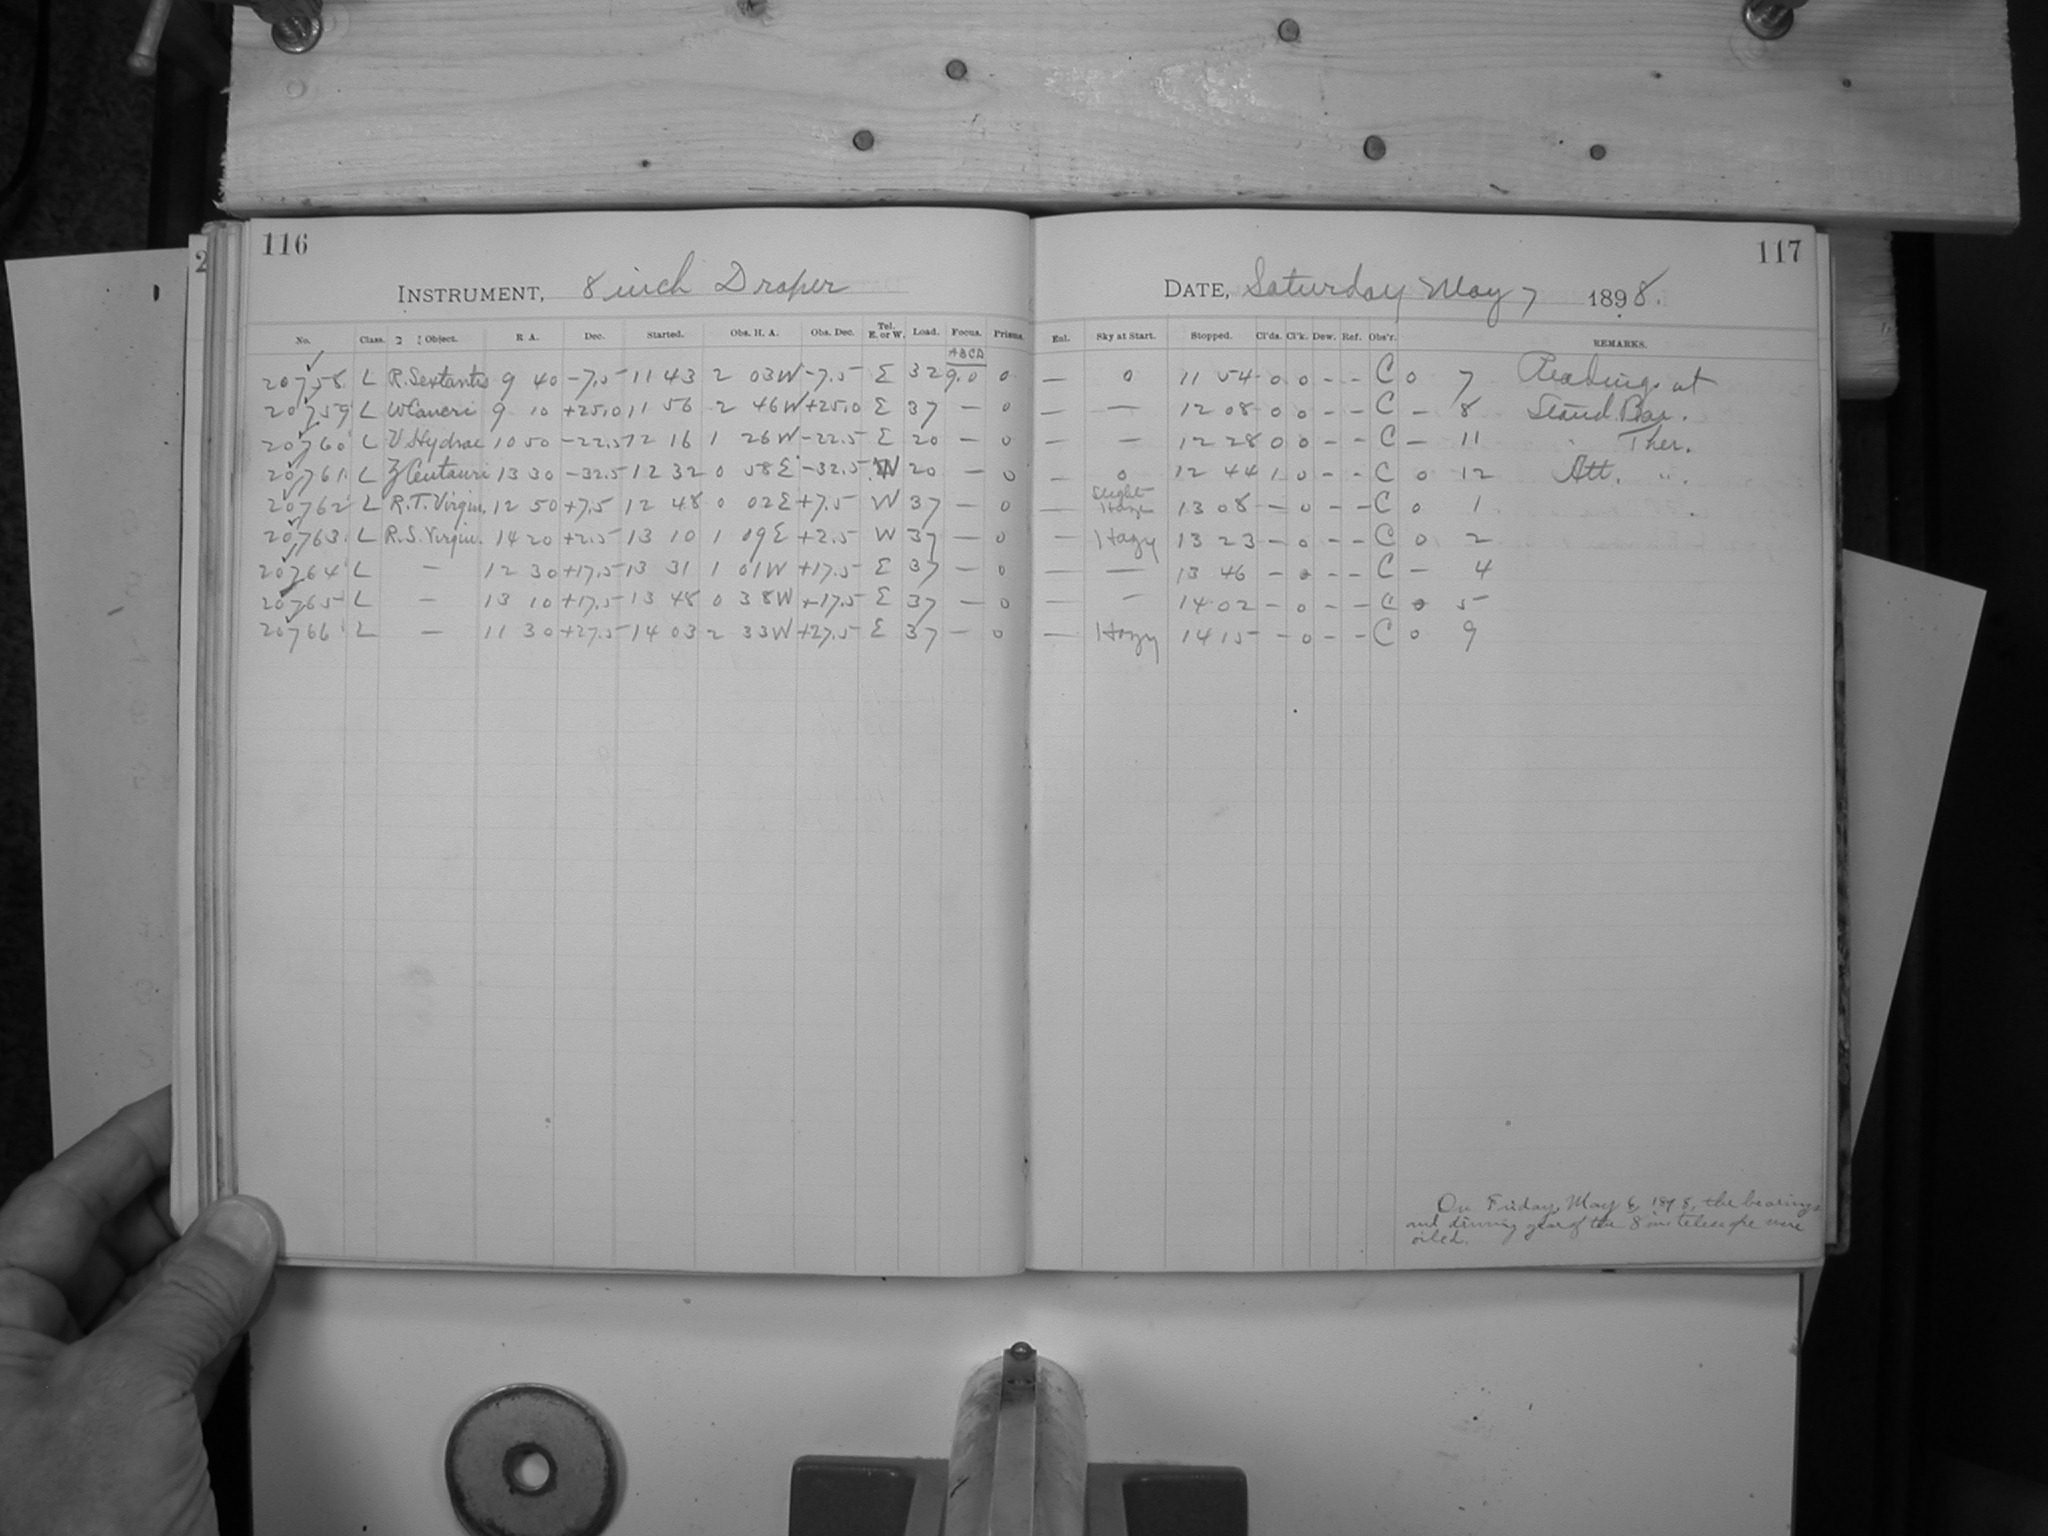 116
INSTRUMENT, 8 inch Draper
No. Class. 2 Object. R. A. Dec. Started. Obs. H. A. Obs. Dec. Tel. E. or W. Load. Focus. Prisms.
ABCD
20758 L R. Sextantis 9 40 -7.5 11 43 2 03W -7.5 E 32 9.0 0
20759 L W Cancri 9 10 +25.0 11 56 2 46W +25.0 E 37 — 0
20760 L U Hydrae 10 50 -22.5 12 16 1 26W -22.5 E 20 — 0
20761 L Z Centauri 13 30 -32.5 12 32 0 58E -32.5 W 20 — 0
20762 L R.T. Virgin. 12 50 +7.5 12 48 0 02E +7.5 W 37 — 0
20763 L R.S. Virgin. 14 20 +2.5 13 10 1 09E +2.5 W 37 — 0
20764 L — 12 30 +17.5 13 31 1 01W +17.5 E 37 — 0
20765 L — 13 10 +17.5 13 48 0 38W +17.5 E 37 — 0
20766 L — 11 30 +27.5 14 03 2 33W +27.5 E 37 — 0
117
DATE, Saturday May 7 1898.
Enl. Sky at Start. Stopped. Cl'ds. Cl'k. Dew. Ref. Obs'r. REMARKS.
— 0 11 54 0 0 - - C 0 7 Readings at
— — 12 08 0 0 - - C — 8 Stand. Bar.
— — 12 28 0 0 - - C — 11 " Ther.
— 0 12 44 1 0 - - C 0 12 Att. ".
— Slight Haze 13 08 — 0 - - C 0 1
— Hazy 13 23 — 0 - - C 0 2
— — 13 46 — 0 - - C — 4
— — 14 02 — 0 - - C 0 5
— Hazy 14 15 — 0 - - C 0 9
On Friday, May 6, 1898, the bearings
and driving gear of the 8 in. telescope were
oiled.